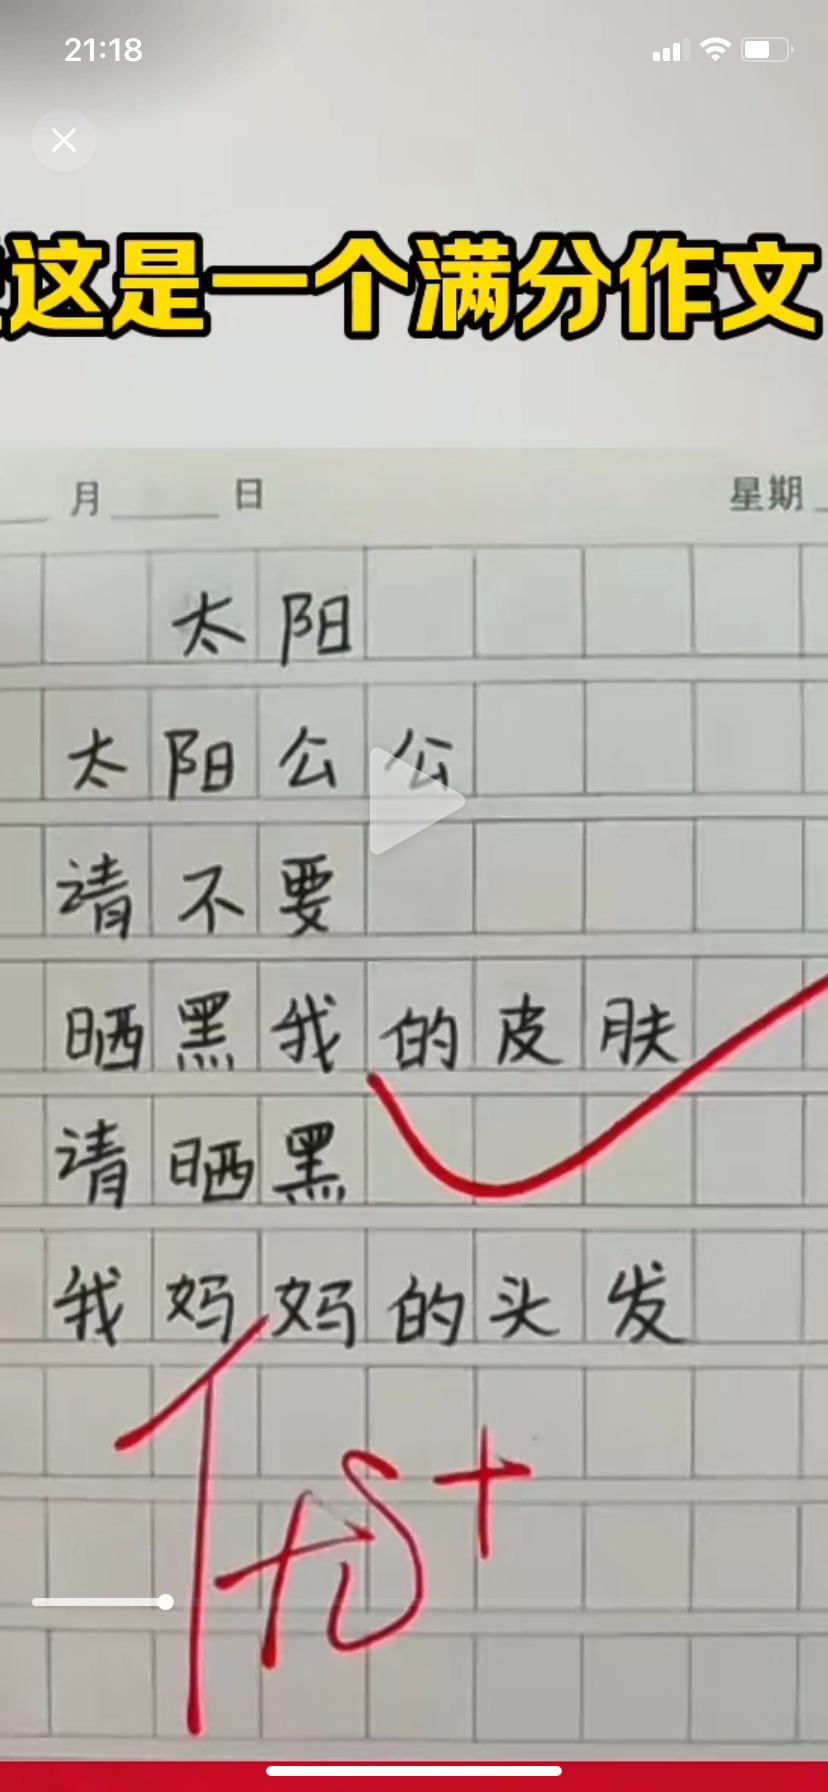 21:18
这是一个满分作文
月 日 星期
太阳
太阳公公
请不要
晒黑我的皮肤
请晒黑
我妈妈的头发